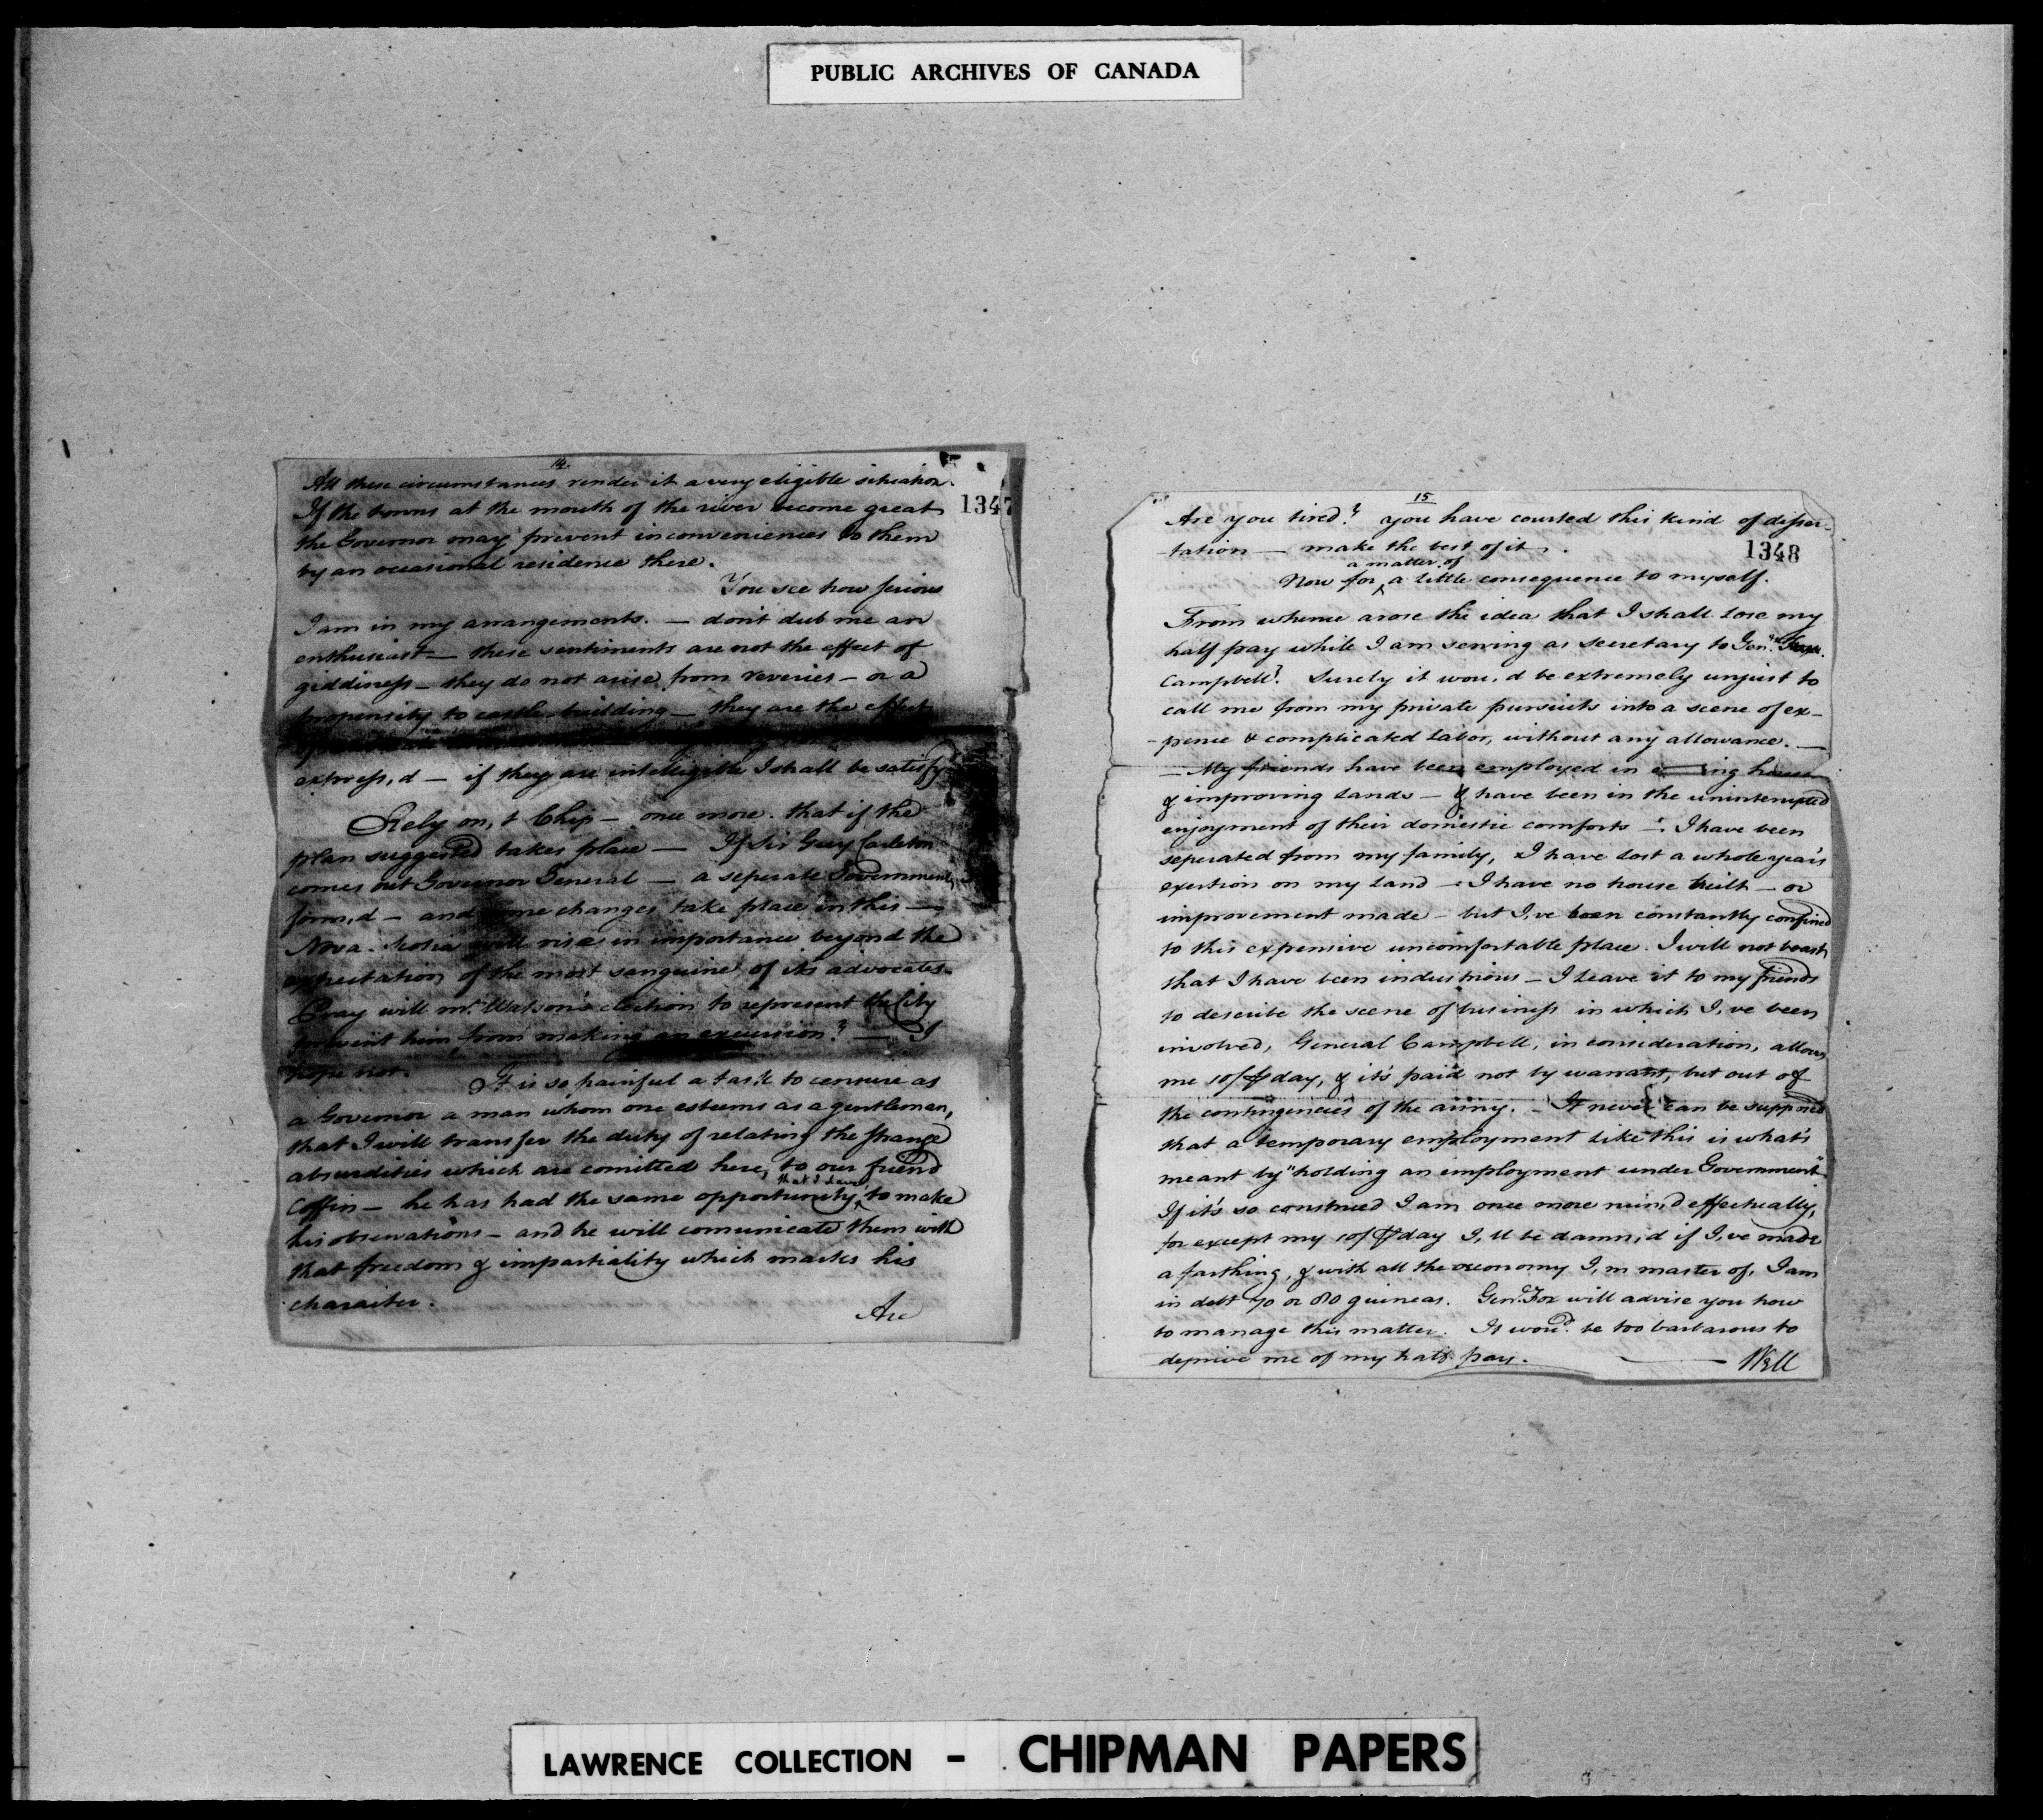 PUBLIC ARCHIVES OF CANADA
14.
All these circumstances render it a very eligible situation.
1347
If the towns at the mouth of the river become great
the Governor may prevent inconveniences to them
by an occasional residence there.
You see how serious
I am in my arrangements. — dont dub me an
enthusiast — these sentiments are not the effect of
giddiness — they do not arise from reveries — or a
propensity to castle-building — they are the effect
express,d — if they are intelligible I shall be satisfy
Rely on,t Chip — once more. that if the
plan suggested takes place — If Sir Guy Carleton
comes out Governor General — a seperate Government,
form,d — and some changes take place in this —
Nova-Scotia will rise in importance beyond the
expectation of the most sanguine of its advocates.
Pray will mr. Watson's election to represent the City
prevent him from making an excursion? — I
hope not.
It is so painful a task to censure as
a Governor a man whom one esteems as a gentleman,
that I will transfer the duty of relating the strange
absurdities which are comitted here, to our friend
that I have
Coffin — he has had the same opportunity to make
his observations — and he will comunicate them with
that freedom & impartiality which marks his
character.
Are
15
Are you tired? you have courted this kind of disser-
-tation — make the best of it.
1348
a matter of
Now for a little consequence to myself.
From whence arose the idea that I shall lose my
half pay while I am serving as secretary to Genl.
Campbell? Surely it wou,d be extremely unjust to
call me from my private pursuits into a scene of ex-
-pence & complicated labor, without any allowance. —
— My friends have been employed in ing houses
& improving lands — & have been in the uninterrupted
enjoyment of their domestic comforts — I have been
seperated from my family, I have lost a whole year's
exertion on my land — I have no house built — or
improvement made — but I,ve been constantly confined
to this expensive uncomfortable place. I will not boast,
that I have been industrious — I leave it to my friends
to describe the scene of business in which I,ve been
involved, General Campbell, in consideration, allows
me 10/ ⅌ day, & it's paid not by warrant, but out of
the contingencies of the army. — It never can be supposed
that a temporary employment like this is what's
meant by "holding an employment under Government"
If it's so construed I am once more ruin,d effectually,
for except my 10/ ⅌ day I,ll be damn,d if I,ve made
a farthing, & with all the oeconomy I,m master of, I am
in debt 70 or 80 guineas. Genl. Fox will advise you how
to manage this matter. It woud. be too barbarous to
deprive me of my half pay. — Well
LAWRENCE COLLECTION - CHIPMAN PAPERS